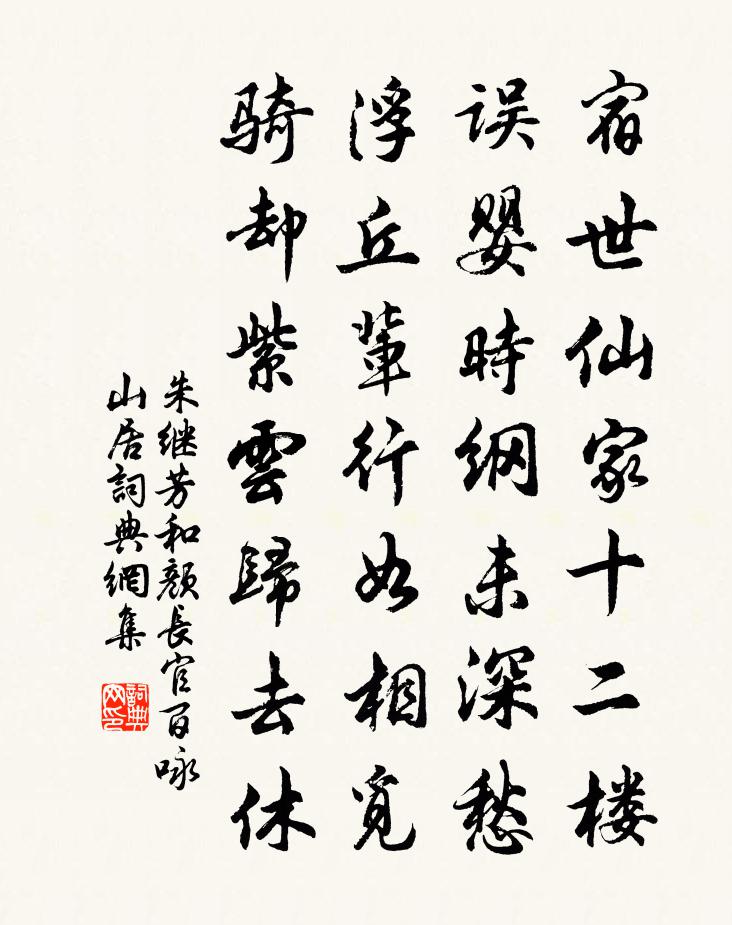 宿世仙家十二楼
误婴時網未深愁
浮丘輩行如相覓
骑却紫雲歸去休
朱继芳和颜長官百咏
山居詞典網集
詞典
网印